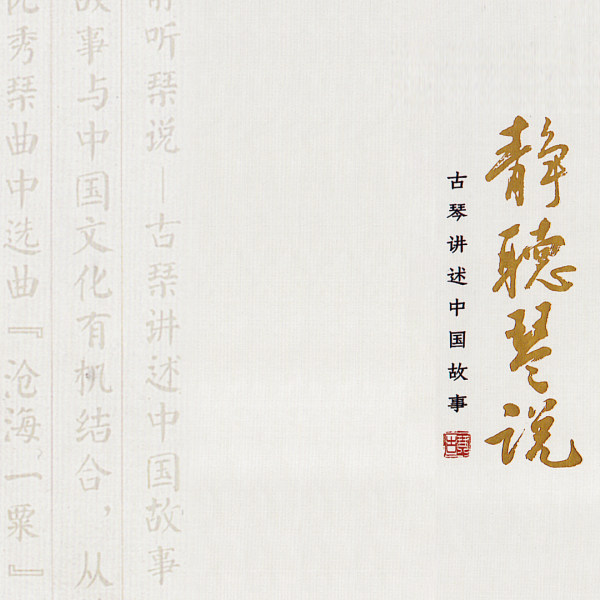 静聽琴说
古琴讲述中国故事
静听琴说—古琴讲述中国故事
故事与中国文化有机结合，从
秀琴曲中选曲『沧海一粟』